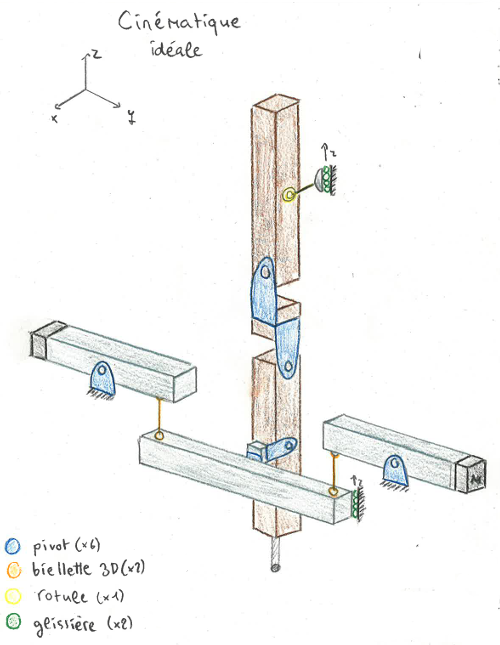 Cinématique
idéale
z
x
y
z
z
pivot (x6)
biellette 3D (x2)
rotule (x1)
glissière (x2)